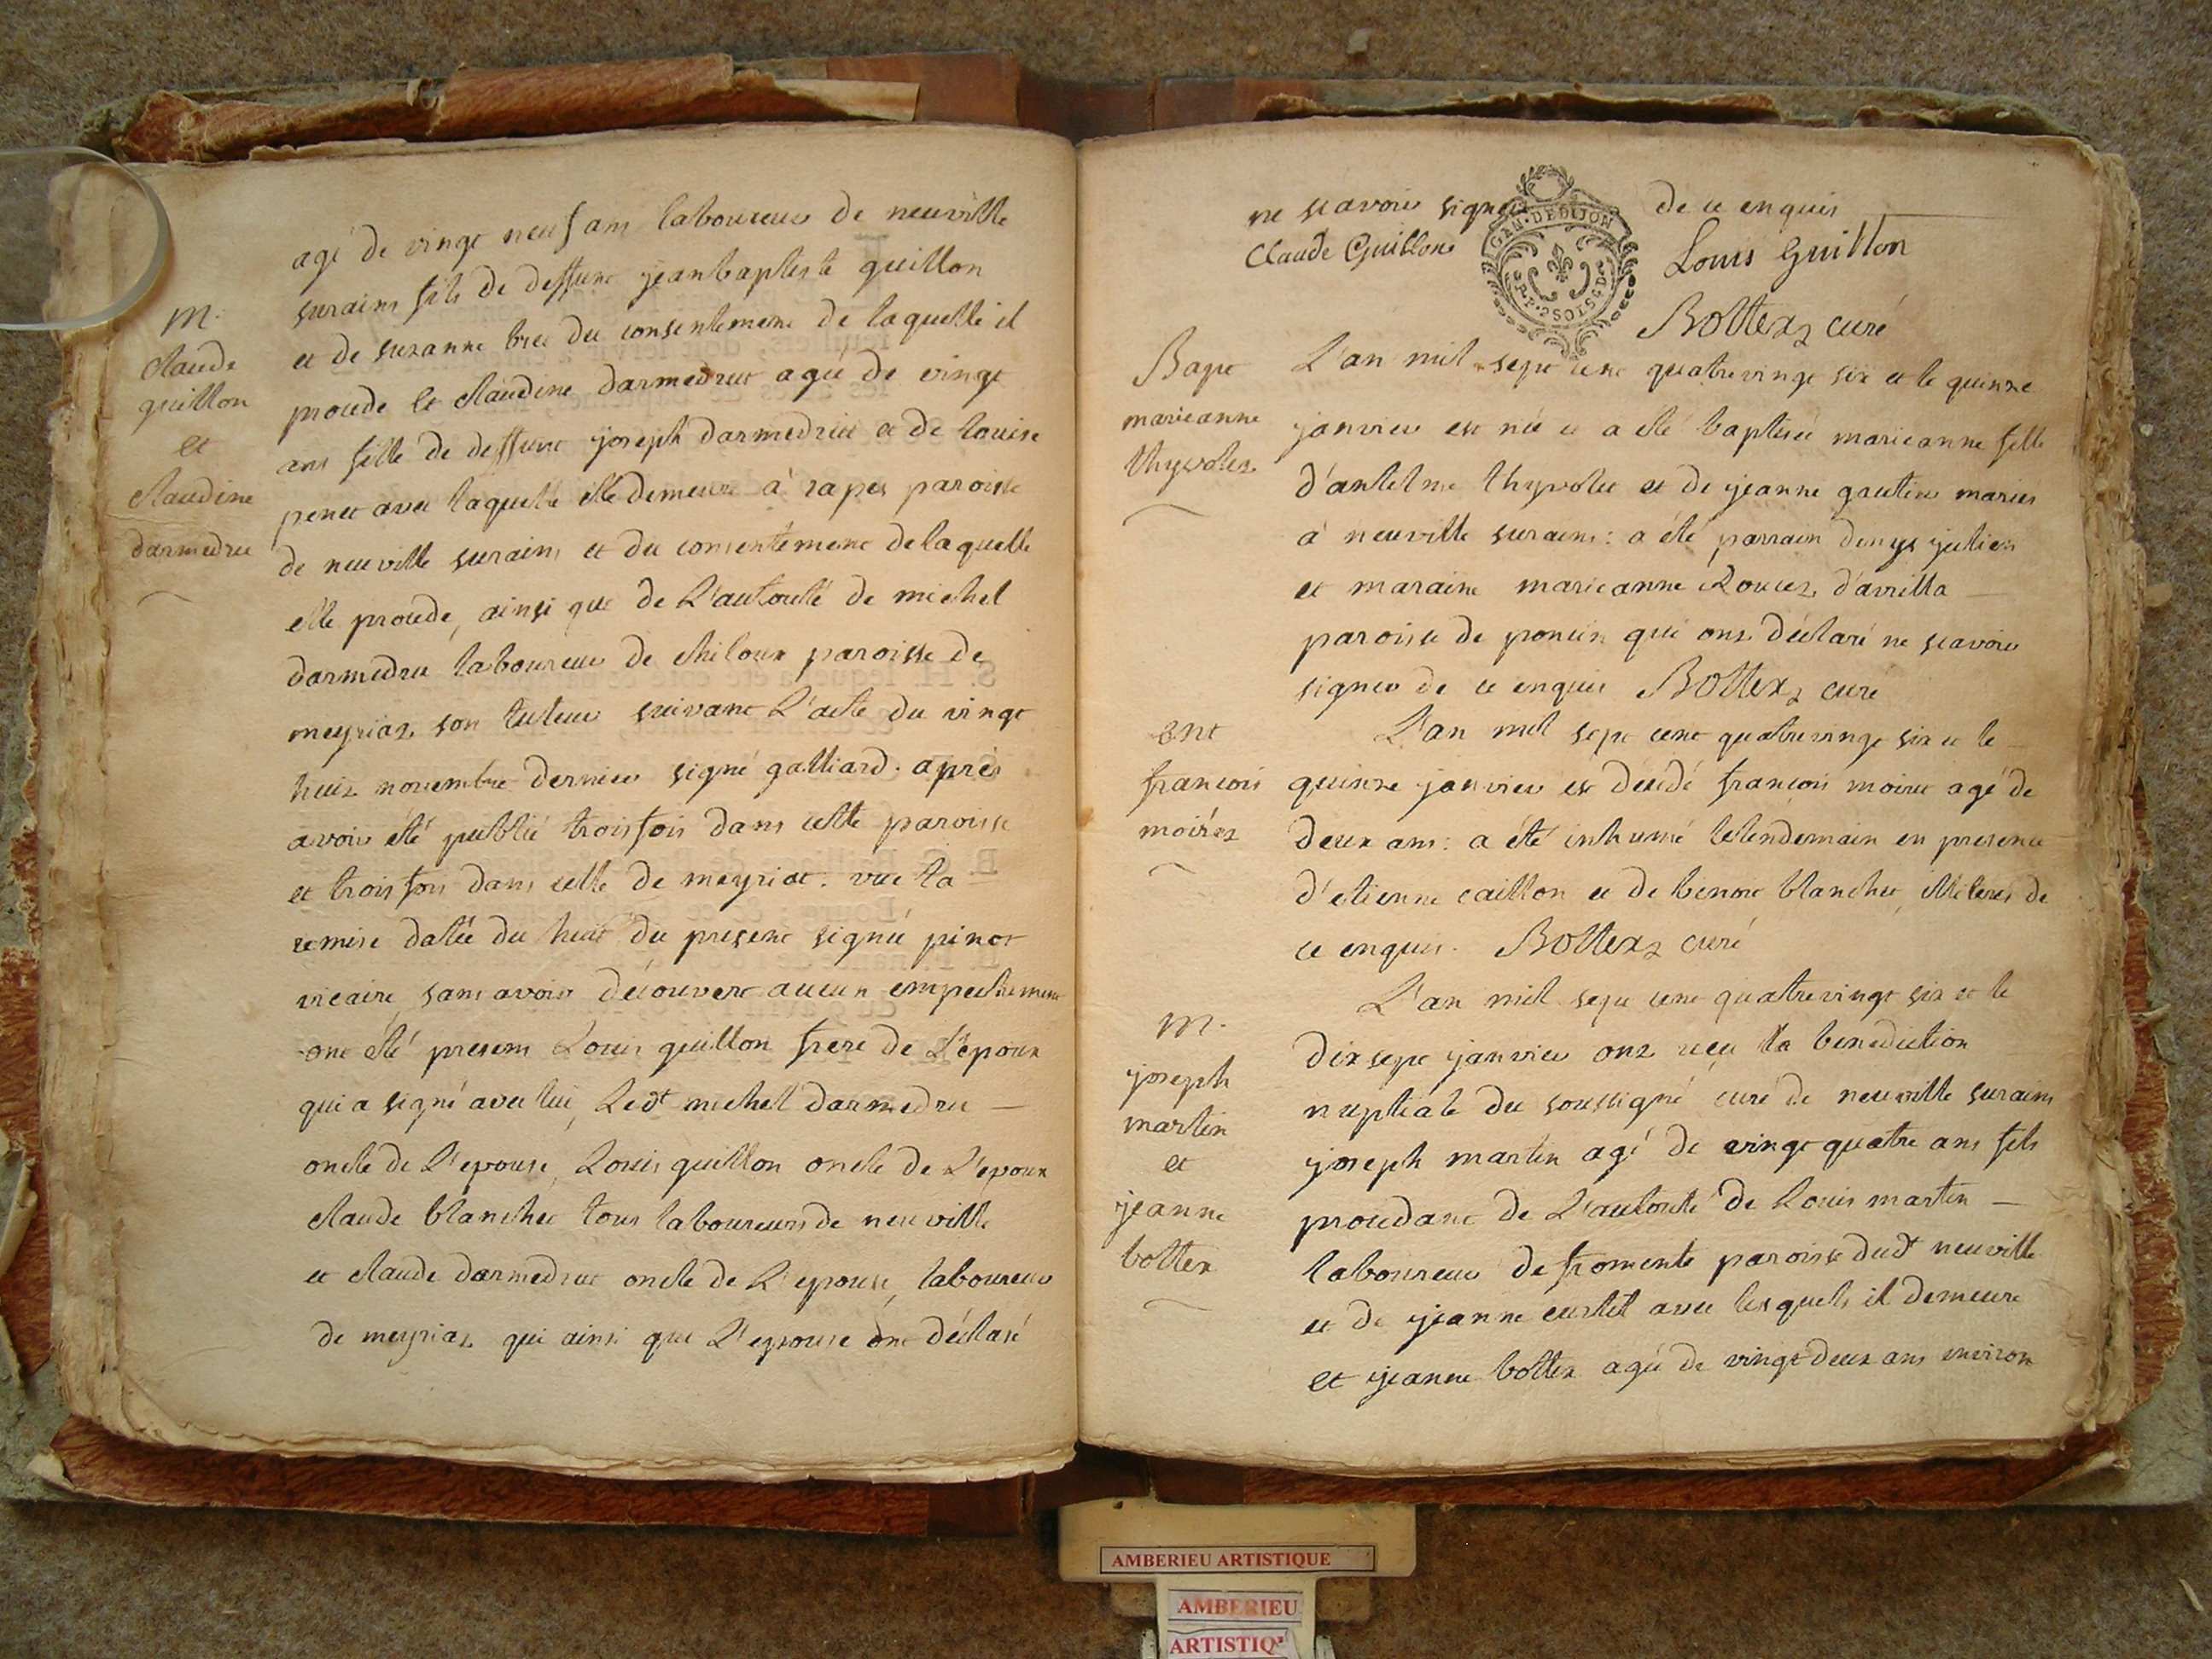 m.
claude
guillon
et
claudine
darmedru
agé de vingt neuf ans laboureur de neuville
surains fils de deffunt jean baptiste guillon
et de suzanne bret du consentement de laquelle il
procede et claudine darmedru agée de vingt
ans fille de deffunt joseph darmedru et de louise
penet avec laquelle elle demeure à rapes paroisse
de neuville surains et du consentement de laquelle
elle procede, ainsi que de L'autorité de michel
darmedru laboureur de chiloux paroisse de
meyriaz son tuteur suivant L'acte du vingt
huit novembre dernier signé galliard. après
avoir été publié trois fois dans cette paroisse
et trois fois dans celle de meyriat. vue la
remise datée du huit du present signée pinot
vicaire, sans avoir découvert aucun empechement
ont été presens Louis guillon frere de L'epoux
qui a signé avec lui, Ledt michel darmedru
oncle de L'epouse, Louis guillon oncle de L'epoux
claude blanchet tous laboureurs de neuville
et claude darmedru oncle de L'epouse, laboureur
de meyriaz qui ainsi que L'epouse ont déclaré
ne scavoir signer de ce enquis
Claude Guillon Louis Guillon
GEN. DE DIJON
Bottex curé
Bapt
marieanne
thyvolez
L'an mil sept cent quatrevingt six et le quinze
janvier est née et a été baptisée marieanne fille
d'antelme thyvolet et de jeanne gautier mariés
à neuville surains: a été parrain denys julien
et maraine marieanne Rouez d'avrilla
paroisse de poncin qui ont déclaré ne scavoir
signer de ce enquis Bottex curé
ent
françois
moirez
L'an mil sept cent quatrevingt six et le
quinze janvier est decedé françois moiret agé de
deux ans: a été inhumé lelendemain en presence
d'etienne caillon et de benoit blanchet, illeteres de
ce enquis. Bottex curé
m.
joseph
martin
et
jeanne
bottex
L'an mil sept cent quatrevingt six et le
dix sept janvier ont reçu la benediction
nuptiale du soussigné curé de neuville surains
joseph martin agé de vingt quatre ans fils
procedant de L'autorité de Louis martin
laboureur de fromente paroisse dudt neuville
et de jeanne curtet avec lesquels il demeure
et jeanne bottex agée de vingt deux ans environ
AMBERIEU ARTISTIQUE
AMBERIEU
ARTISTIQ